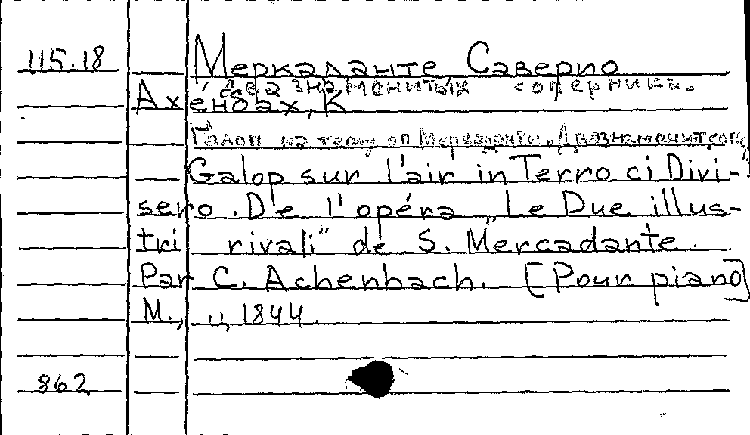 115.18 Меркаданте Саверио
Два знаменитых соперника.
Ахенбах, К
Галоп на тему оп Меркаданте „Два знаменитых
Galop sur l'air in Terro ci Divi-
sero. De l'opéra „Le Due illus-
tri rivali" de S. Mercadante.
Par C. Achenbach. [Pour piano]
М., ц, 1844.
862